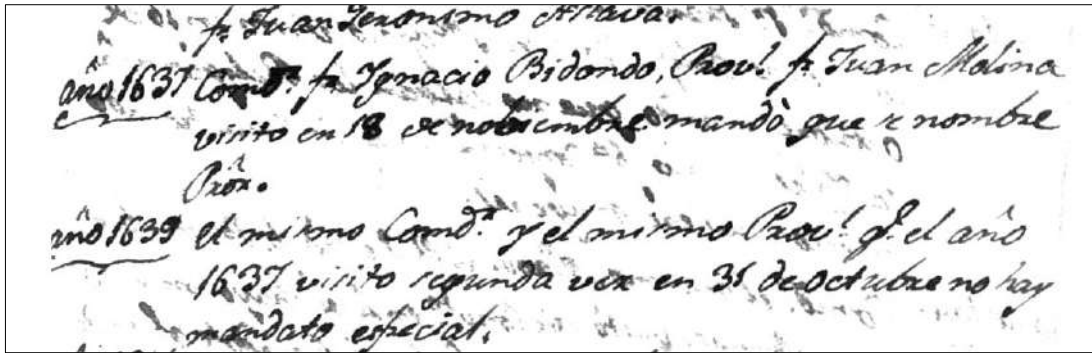 fr Juan Jeronimo Allava.
año 1637 Comdr. fr Ygnacio Bidondo, Provl. fr Juan Molina
visito en 18 de nobiembre mandò que se nombre
Prör.
año 1639 el mismo Comdr. y el mismo Provl. q.e el año
1637 visito segunda vez en 31 de octubre no hay
mandato especial.